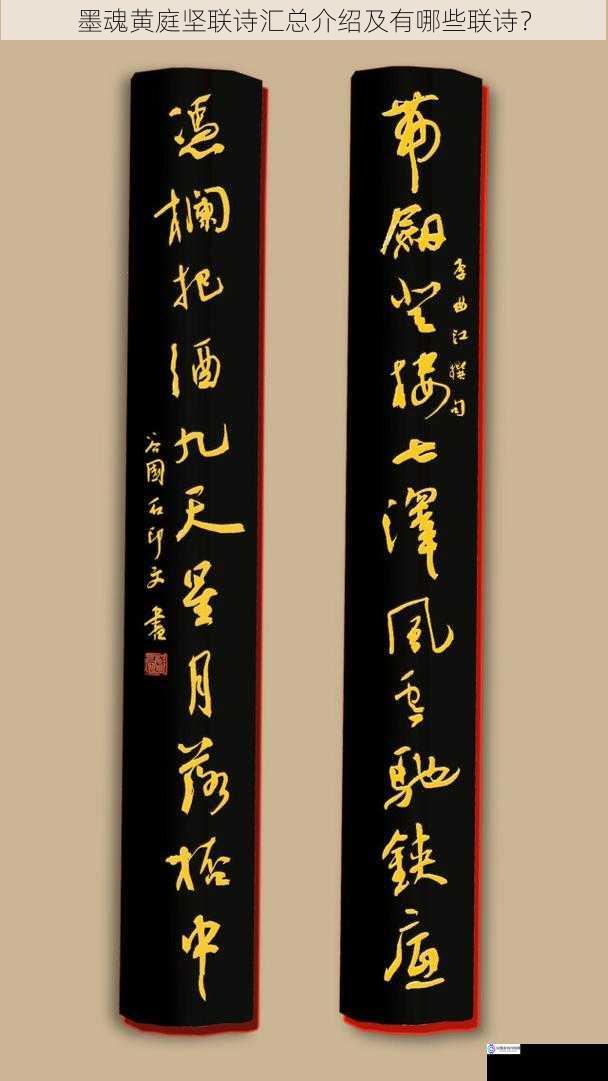 墨魂黄庭坚联诗汇总介绍及有哪些联诗？
帶劒登樓七澤風雲馳鋏底
李曲江撰句
憑欄把酒九天星月落桮中
谷國石印文書